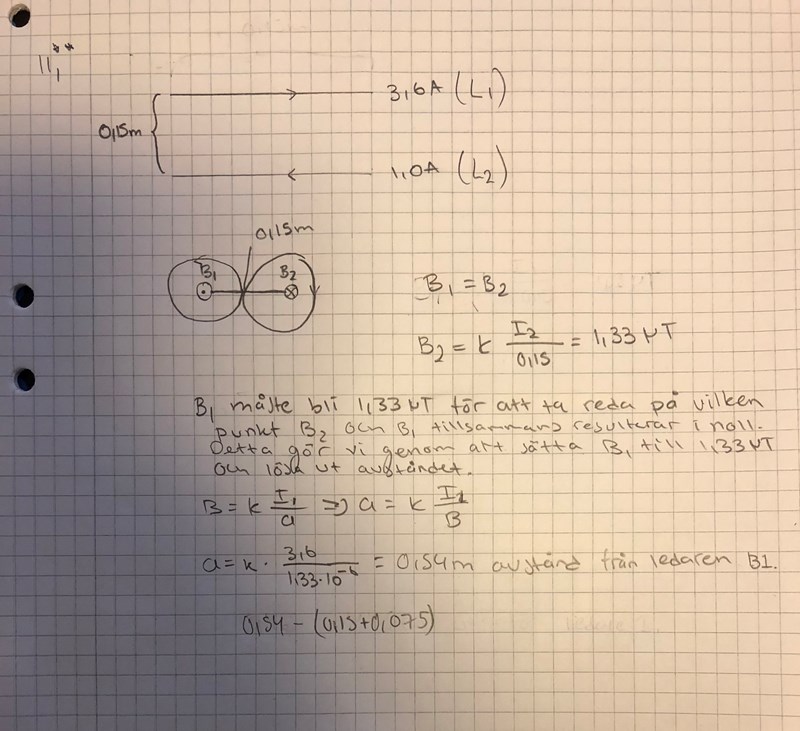 11, **
3,6A (L1)
0,15m
1,0A (L2)
0,15m
B1 B2
B1 = B2
B2 = k I2/0,15 = 1,33 µT
B1 måste bli 1,33 µT för att ta reda på vilken
punkt B2 och B1 tillsammans resulterar i noll.
Detta gör vi genom att sätta B1 till 1,33 µT
och lösa ut avståndet.
B = k I1/a => a = k I1/B
a = k · 3,6/1,33·10^-6 = 0,54m avstånd från ledaren B1.
0,54 - (0,15+0,075)